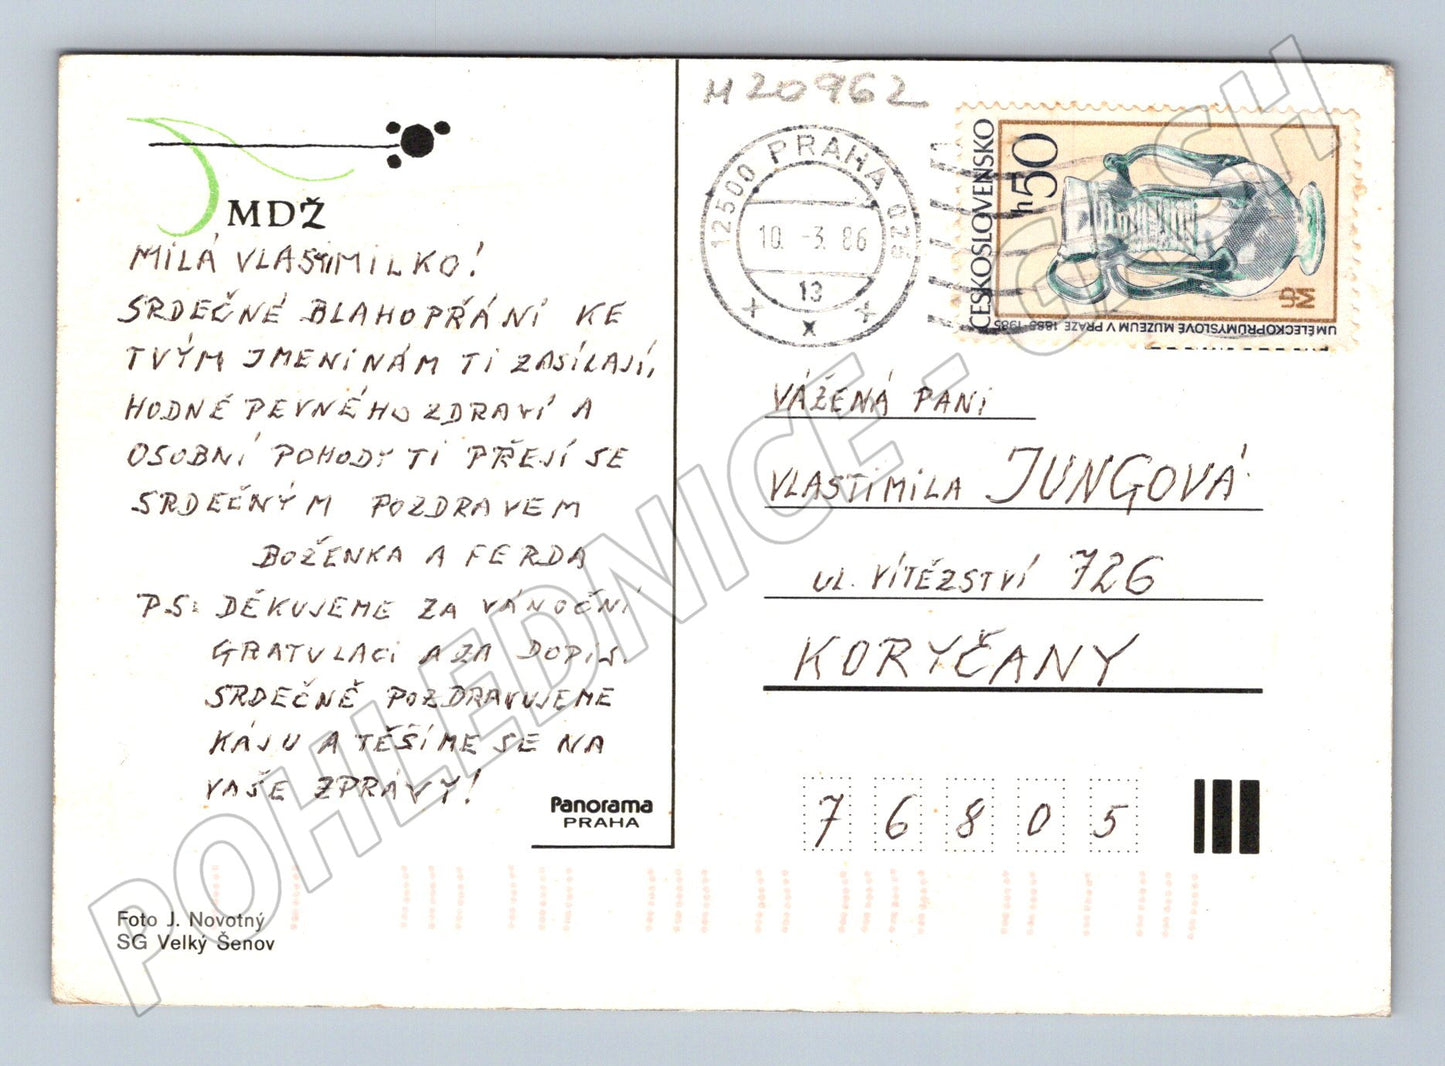 MDŽ
MILÁ VLASTIMILKO!
SRDEČNÉ BLAHOPŘÁNÍ KE
TVÝM JMENINÁM TI ZASÍLAJÍ,
HODNĚ PEVNÉHO ZDRAVÍ A
OSOBNÍ POHODY TI PŘEJÍ SE
SRDEČNÝM POZDRAVEM
BOŽENKA A FERDA
PS: DĚKUJEME ZA VÁNOČNÍ
GRATULACI A ZA DOPIS.
SRDEČNĚ POZDRAVUJEME
KÁJU A TĚŠÍME SE NA
VAŠE ZPRÁVY!
Panorama
PRAHA
Foto J. Novotný
SG Velký Šenov
M20962
12500 PRAHA 025
10. -3. 86
13
x x x
ČESKOSLOVENSKO
h50
UMĚLECKOPRŮMYSLOVÉ MUZEUM V PRAZE 1885-1985
VÁŽENÁ PANÍ
VLASTIMILA JUNGOVÁ
UL. VÍTĚZSTVÍ 726
KORYČANY
7 6 8 0 5
POHLEDNICE - CZ.SH